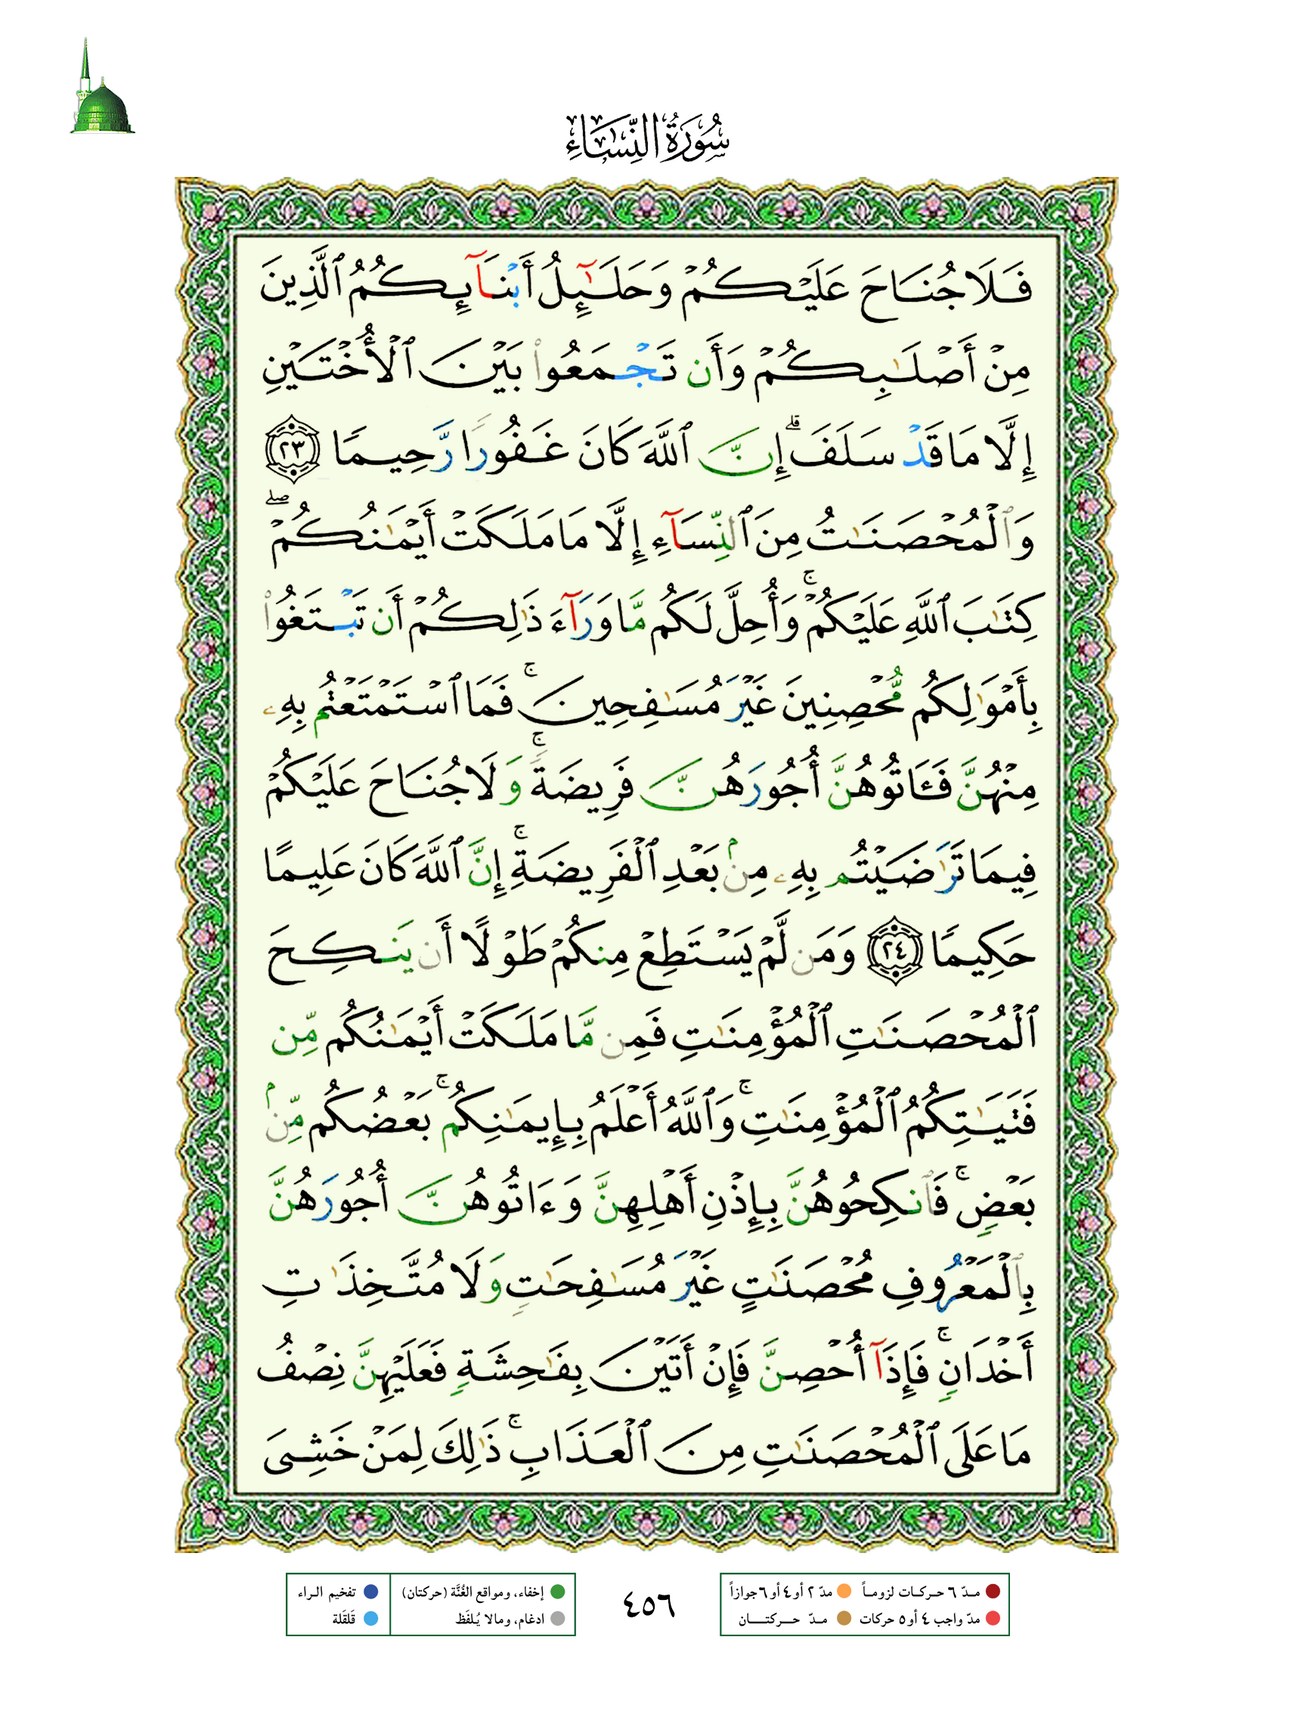 سُورَةُ النِّسَاءِ
فَلَا جُنَاحَ عَلَيْكُمْ وَحَلَٰٓئِلُ أَبْنَآئِكُمُ ٱلَّذِينَ
مِنْ أَصْلَٰبِكُمْ وَأَن تَجْمَعُوا۟ بَيْنَ ٱلْأُخْتَيْنِ
إِلَّا مَا قَدْ سَلَفَ ۗ إِنَّ ٱللَّهَ كَانَ غَفُورًا رَّحِيمًا ٢٣
وَٱلْمُحْصَنَٰتُ مِنَ ٱلنِّسَآءِ إِلَّا مَا مَلَكَتْ أَيْمَٰنُكُمْ ۖ
كِتَٰبَ ٱللَّهِ عَلَيْكُمْ ۚ وَأُحِلَّ لَكُم مَّا وَرَآءَ ذَٰلِكُمْ أَن تَبْتَغُوا۟
بِأَمْوَٰلِكُم مُّحْصِنِينَ غَيْرَ مُسَٰفِحِينَ ۚ فَمَا ٱسْتَمْتَعْتُم بِهِۦ
مِنْهُنَّ فَـَٔاتُوهُنَّ أُجُورَهُنَّ فَرِيضَةً ۚ وَلَا جُنَاحَ عَلَيْكُمْ
فِيمَا تَرَٰضَيْتُم بِهِۦ مِنۢ بَعْدِ ٱلْفَرِيضَةِ ۚ إِنَّ ٱللَّهَ كَانَ عَلِيمًا
حَكِيمًا ٢٤ وَمَن لَّمْ يَسْتَطِعْ مِنكُمْ طَوْلًا أَن يَنكِحَ
ٱلْمُحْصَنَٰتِ ٱلْمُؤْمِنَٰتِ فَمِن مَّا مَلَكَتْ أَيْمَٰنُكُم مِّن
فَتَيَٰتِكُمُ ٱلْمُؤْمِنَٰتِ ۚ وَٱللَّهُ أَعْلَمُ بِإِيمَٰنِكُم ۚ بَعْضُكُم مِّنۢ
بَعْضٍ ۚ فَٱنكِحُوهُنَّ بِإِذْنِ أَهْلِهِنَّ وَءَاتُوهُنَّ أُجُورَهُنَّ
بِٱلْمَعْرُوفِ مُحْصَنَٰتٍ غَيْرَ مُسَٰفِحَٰتٍ وَلَا مُتَّخِذَٰتِ
أَخْدَانٍ ۚ فَإِذَآ أُحْصِنَّ فَإِنْ أَتَيْنَ بِفَٰحِشَةٍ فَعَلَيْهِنَّ نِصْفُ
مَا عَلَى ٱلْمُحْصَنَٰتِ مِنَ ٱلْعَذَابِ ۚ ذَٰلِكَ لِمَنْ خَشِىَ
مدّ ٦ حركات لزوماً مدّ ٢ أو ٤ أو ٦ جوازاً
مدّ واجب ٤ أو ٥ حركات مدّ حركتان
٤٥٦
إخفاء، ومواقع الغُنَّة (حركتان) تفخيم الراء
ادغام، ومالا يُلفَظ قَلقَلة